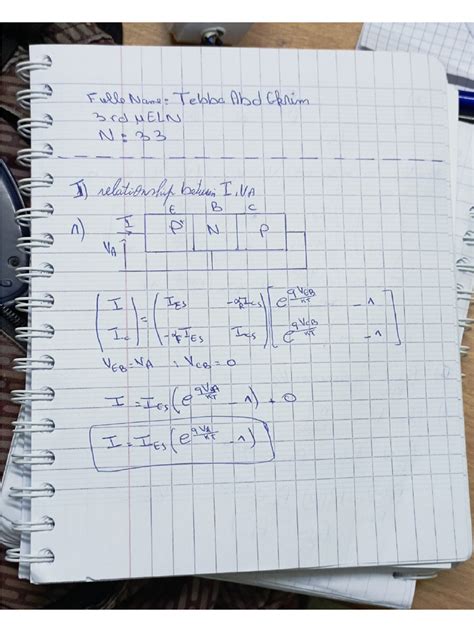 Fulle Name: Tebba Abd
3rd µELN
N: 33
I) relationship between I, VA
1)
I E B C
VA P⁺ N P
(I / Ic) = (IES -αRICS / -αFIES ICS) [e^(qVCB/KT) - 1 / e^(qVCB/KT) - 1]
VEB = VA ; VCB = 0
I = IES (e^(qVA/KT) - 1) + 0
I = IES (e^(qVA/KT) - 1)